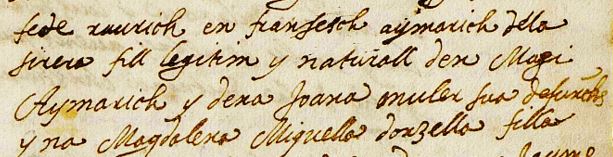 fede raurich en fransesch aymarich della
sirera fill legitim y naturall den Magi
Aymarich y dena Joana muler sua defuncts
y na Magdalena Miquella donzella filla
Jayme